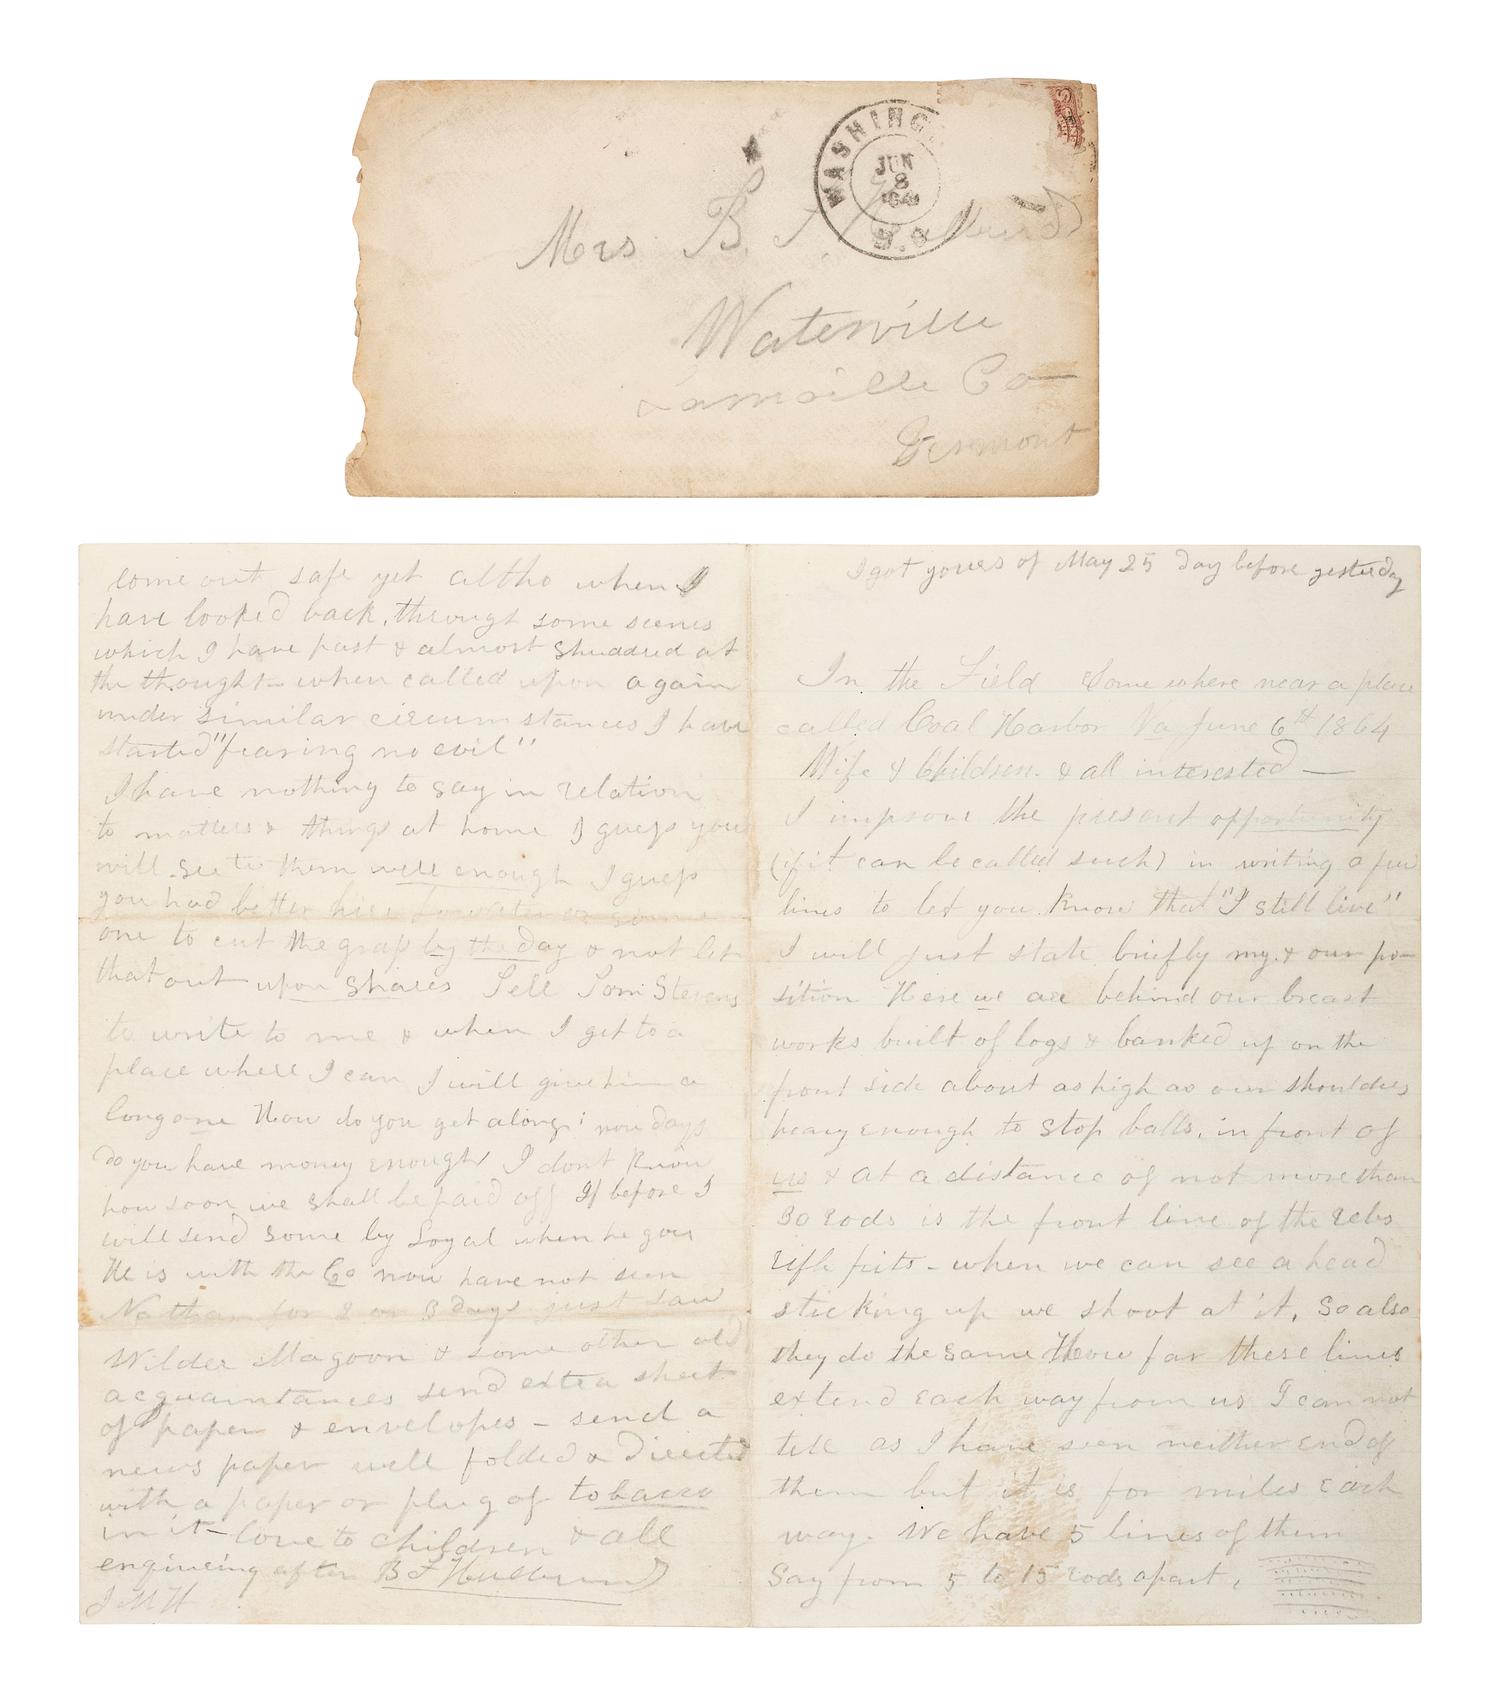 WASHING
JUN
8
'64
D.C.
Mrs B. F. Hulburd
Waterville
Lamoille Co
Vermont
I got yours of May 25 day before yesterday
In the Field Some where near a place
called Coal Harbor Va June 6th 1864
Wife & Children. & all interested —
I improve the present opportunity
(if it can be called such) in writing a few
lines to let you know that "I still live"
I will just state briefly my & our po-
sition Here we are behind our breast
works built of logs & banked up on the
front side about as high as our shoulders
heavy enough to stop balls, in front of
us & at a distance of not more than
30 rods is the front line of the rebs
rifle pits - when we can see a head
sticking up we shoot at it, so also
they do the same How far these lines
extend each way from us I can not
tell as I have seen neither end of
them but it is for miles each
way. We have 5 lines of them
Say from 5 to 15 rods apart,
come out safe yet altho when I
have looked back, through some scenes
which I have past & almost shuddred at
the thought - when called upon again
under similar circumstances I have
started "fearing no evil"
I have nothing to say in relation
to matters & things at home I guess you
will see to them well enough I guess
you had better hire some
one to cut the grass by the day & not let
that out upon shares Tell Tom Stevens
to write to me & when I get to a
place where I can I will give him a
long one How do you get along; now days
do you have money enough I dont know
how soon we shall be paid off If before I
will send some by Loyal when he goes
He is with the Co now have not seen
Nathan for 2 or 3 days just saw
Wilder Magoon & some other old
acquaintances send extra sheet
of paper & envelopes - send a
news paper well folded & directed
with a paper or plug of tobacco
in it - love to children & all
enginering after B F Hulburd